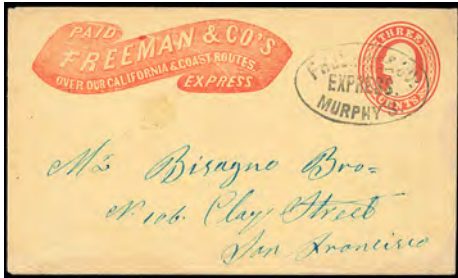 PAID
FREEMAN & CO'S
OVER OUR CALIFORNIA & COAST ROUTES.
EXPRESS
THREE
CENTS
EXPRESS,
MURPHY'S
Bisagno Bro=
No. 106. Clay Street
San Francisco